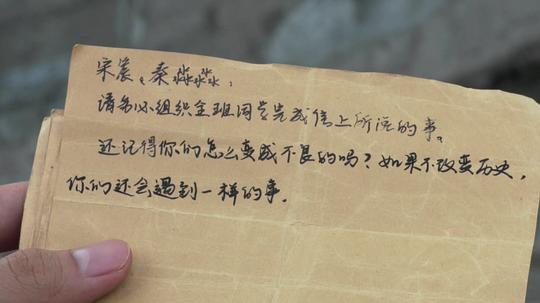 宋晨、秦淼淼，
请务必组织全班同学完成信上所说的事。
还记得你们怎么变成不良的吗？如果不改变历史，
你们还会遇到一样的事。